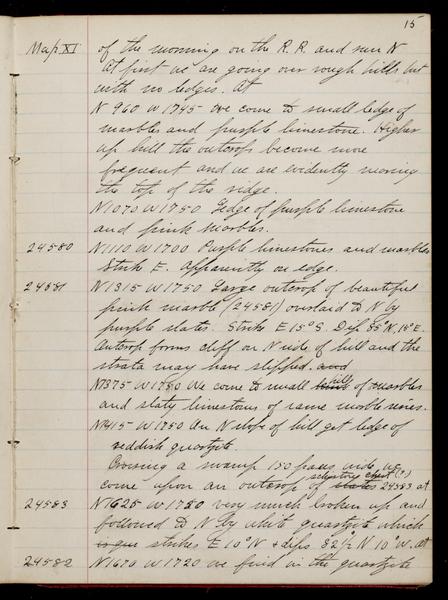 15
Map XI of the morning on the R.R. and run N
At first we are going over rough hills but
with no ledges. At
N 960 W 1745 we come to small ledge of
marbles and purple limestone. Higher
up hill the outcrops become more
frequent and we are evidently nearing
the top of the ridge.
N1070 W1750 Ledge of purple limestone
and pink marbles.
24580 N1110 W1700 Purple limestones and marbles
Strike E. Apparently on edge.
24581 N1315 W1750 Large outcrop of beautiful
pink marble (24581) overlaid to N by
purple slates. Strike E 15° S. Dip 85° N 15° E.
Outcrop forms cliff on N side of hill and the
strata may have slipped. and
N1375 W1750 We come to small hill of marbles
and slaty limestones of same marble series.
N1415 W1750 On N slope of hill get ledge of
reddish quartzite.
Crossing a swamp 150 paces wide we
come upon an outcrop of slates sericitic chert (?) 24583 at
24583 N1625 W1750 very much broken up and
followed to N by white quartzite which
strikes E 10° N + dips 82½ N 10° W. At
24582 N1670 W1720 we find in the quartzite